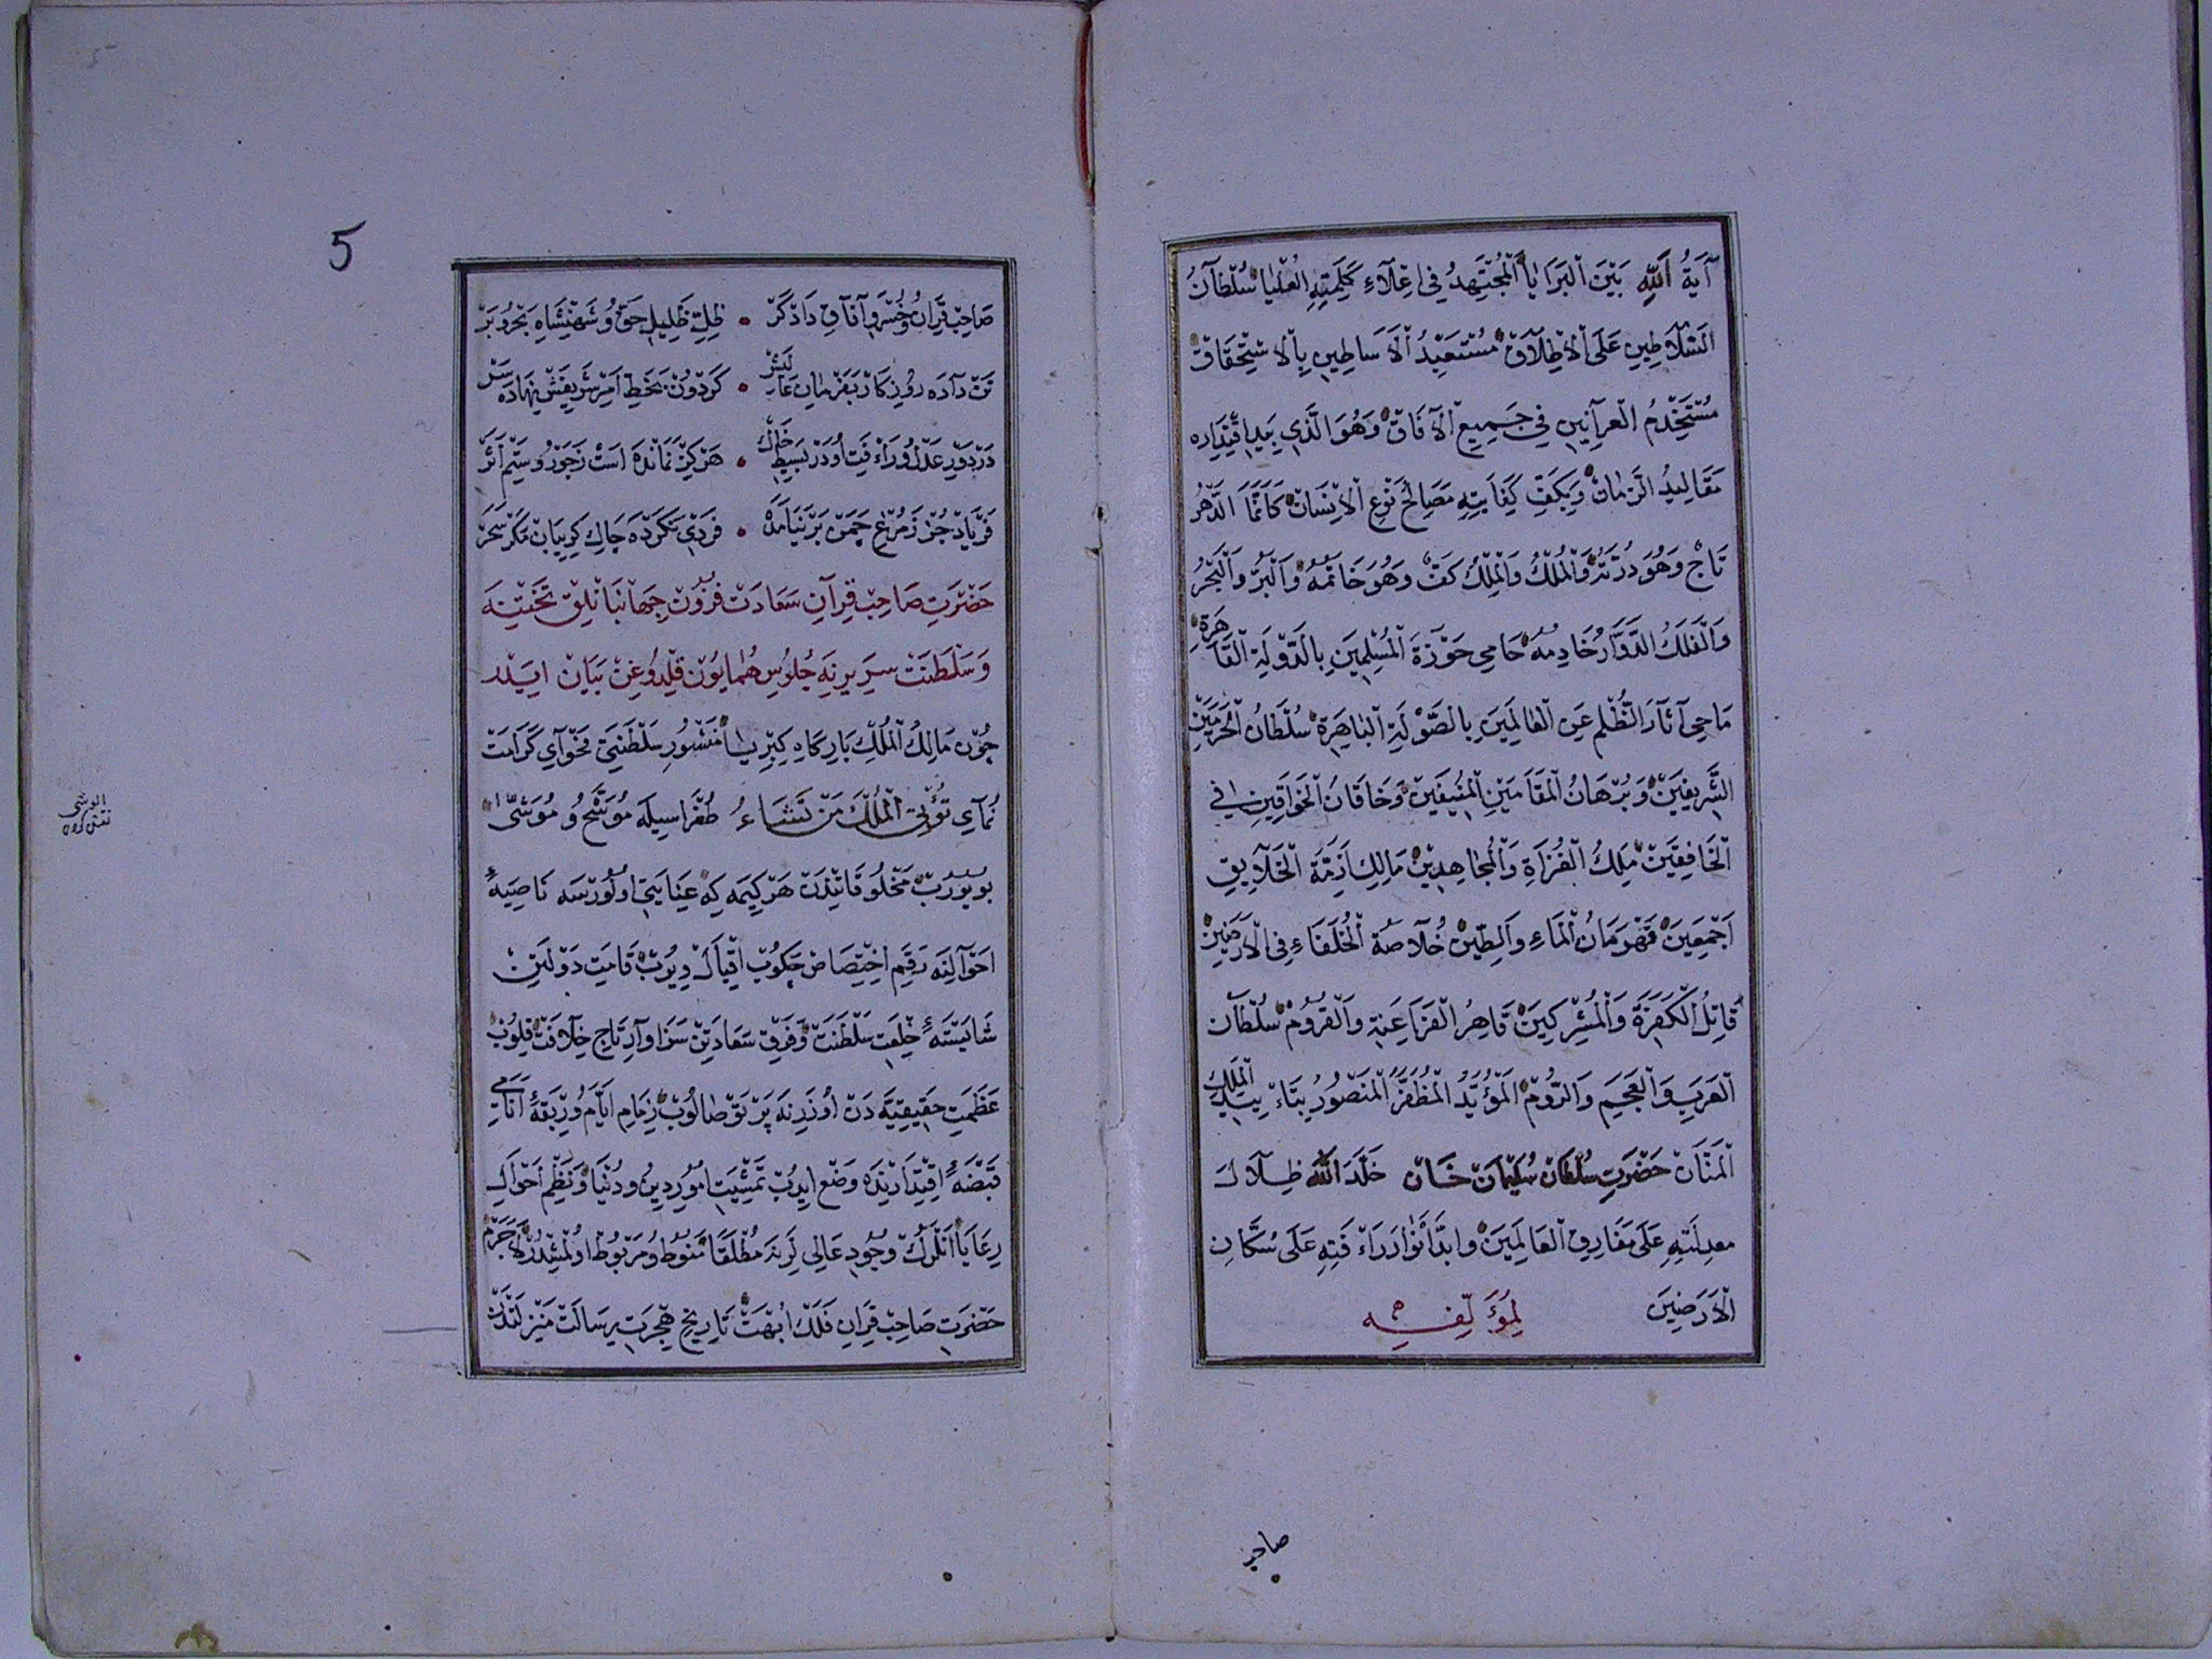 آيَةُ اللّٰهِ بَيْنَ الْبَرَايَا الْمُجْتَهِدُ فِي اِعْلَاءِ كَلِمَتِهِ الْعُلْيَا سُلْطَانُ
السَّلَاطِينِ عَلَى الْاِطْلَاقِ مُسْتَعْبِدُ الْاَسَاطِينِ بِالْاِسْتِحْقَاقِ
مُسْتَخْدِمُ الْعَرَانِينِ فِي جَمِيعِ الْآفَاقِ وَهُوَ الَّذِي بِيَدِ اقْتِدَارِه
مَقَالِيدُ الزَّمَانِ وَبِكَفِّ كِفَايَتِهِ مَصَالِحُ نَوْعِ الْاِنْسَانِ كَاَنَّمَا الدَّهْرُ
تَاجٌ وَهُوَ دُرَّتُهُ وَالْمُلْكُ وَالْمِلْكُ كَفٌّ وَهُوَ خَاتَمُهُ وَالْبَرُّ وَالْبَحْرُ
وَالْفَلَكُ الدَّوَّارُ خَادِمُهُ حَامِي حَوْزَةَ الْمُسْلِمِينَ بِالدَّوْلَةِ الْقَاهِرَةِ
مَاحِي آثَارَ الظُّلْمِ عَنِ الْعَالَمِينَ بِالصَّوْلَةِ الْبَاهِرَةِ سُلْطَانُ الْحَرَمَيْنِ
الشَّرِيفَيْنِ وَبُرْهَانُ الْمَقَامَيْنِ الْمُنِيفَيْنِ وَخَاقَانُ الْخَوَاقِينِ فِي
الْخَافِقَيْنِ مَلِكُ الْغُزَاةِ وَالْمُجَاهِدِينَ مَالِكُ اَزِمَّةَ الْخَلَايِقِ
اَجْمَعِينَ قَهْرَمَانُ الْمَاءِ وَالطِّينِ خُلَاصَةُ الْخُلَفَاءِ فِي الْاَرَضِينَ
قَاتِلُ الْكَفَرَةَ وَالْمُشْرِكِينَ قَاهِرُ الْفَرَاعِنَةِ وَالْقُرُومِ سُلْطَانُ
الْعَرَبِ وَالْعَجَمِ وَالرُّومِ الْمُؤَيَّدُ الْمُظَفَّرُ الْمَنْصُورُ بِتَاْيِيدِ الْمَلِكِ
الْمَنَّانِ حَضْرَتِ سُلْطَانْ سُلَيْمَانْ خَانْ خَلَّدَ اللّٰهُ ظِلَالَ
مَعْدِلَتِهِ عَلَى مَفَارِقِ الْعَالَمِينَ وَاَبَّدَ اَنْوَارَ رَاْفَتِهِ عَلَى سُكَّانِ
الْاَرَضِينَ لِمُؤَلِّفِهِ
صاحب
5
صَاحِبْ قِرَانْ وُ خُسْرَوِ آفَاقِ دَادْكَرْ • ظِلِّ ظَلِيلِ حَقّ وُ شَهَنْشَاهِ بَحْرُ وبَرْ
تَنْ دَادَه رُوزِكَارْ بَفَرْمَانِ عَالِيَشْ • كَرْدُونْ بَخَطِّ اَمْرِ شَرِيفَشْ نِهَادَه سَرْ
دَرْ دَوْرِ عَدْلُ ورَاْفَتِ اُو دَرْ بَسِيطِ خَاكْ • هَرْكِزْ نَمَانْدَه اَسْتْ زَجَوْرُ وسِتَمْ اَثَرْ
فَرْيَادْ جُزْ زَمُرْغِ چَمَنْ بَرْنَيَامَدَه • فَرْدِي نَكَرْدَه چَاكِ كَرِيبَانْ مَكَرْ سَحَرْ
حَضْرَتِ صَاحِبْ قِرَانِ سَعَادَتْ فُزُونْ جِهَانْبَانْلِقْ تَخْتِنَه
وَسَلْطَنَتْ سَرِيرِنَه جُلُوسِ هُمَايُونْ قِلْدُوغِنْ بَيَانْ اِيدَرْ
چُونْ مَالِكُ الْمُلْكِ بَارِكَاهِ كِبْرِيَا مَنْشُورِ سَلْطَنَتِي فَحْوَاي كَرَامَتْ
نُمَاي تُؤْتِي الْمُلْكَ مَنْ تَشَاءُ طُغْرَاسِيلَه مُوَشَّحُ و مُوَشَّى
بُويُورُبْ مَخْلُوقَاتِنْدَنْ هَرْ كِيمَه كِه عِنَايَتِي اُولُورْسَه نَاصِيَهءِ
اَحْوَالِنَه رَقَمِ اِخْتِصَاصْ چَكُوبْ اِقْبَالْ وِيرُبْ قَامَتِ دَوْلَتِنْ
شَايَسْتَهءِ خِلْعَتِ سَلْطَنَتْ وَفَرْقِ سَعَادَتِنْ سَزَاوَارِ تَاجِ خِلَافَتْ قِلُوبْ
عَظَمَتِ حَقِيقِيَّه دَنْ اُوزَرِنَه پَرْتَوْ صَالُوبْ زِمَامِ اَيَّامُ ورِبْقَهءِ اَنَامِي
قَبْضَهءِ اِقْتِدَارِنْدَه وَضْع اِيدُبْ تَمْشِيَتِ اُمُورِ دِينُ ودُنْيَا وَنَظْمِ اَحْوَالِ
رِعَايَا اَنْلَرُكْ وُجُودِ عَالِي لَرِنَه مُطْلَقَا مَنُوطُ ومَرْبُوطْ اُولْمِشْدُرْ لَاجَرَمْ
حَضْرَتِ صَاحِبْ قِرَانِ فَلَكْ اُبُّهَتْ تَارِيخِ هِجْرَتِ رِسَالَتْ مَنْزِلَتْدَنْ
الوشى
نقش كردن